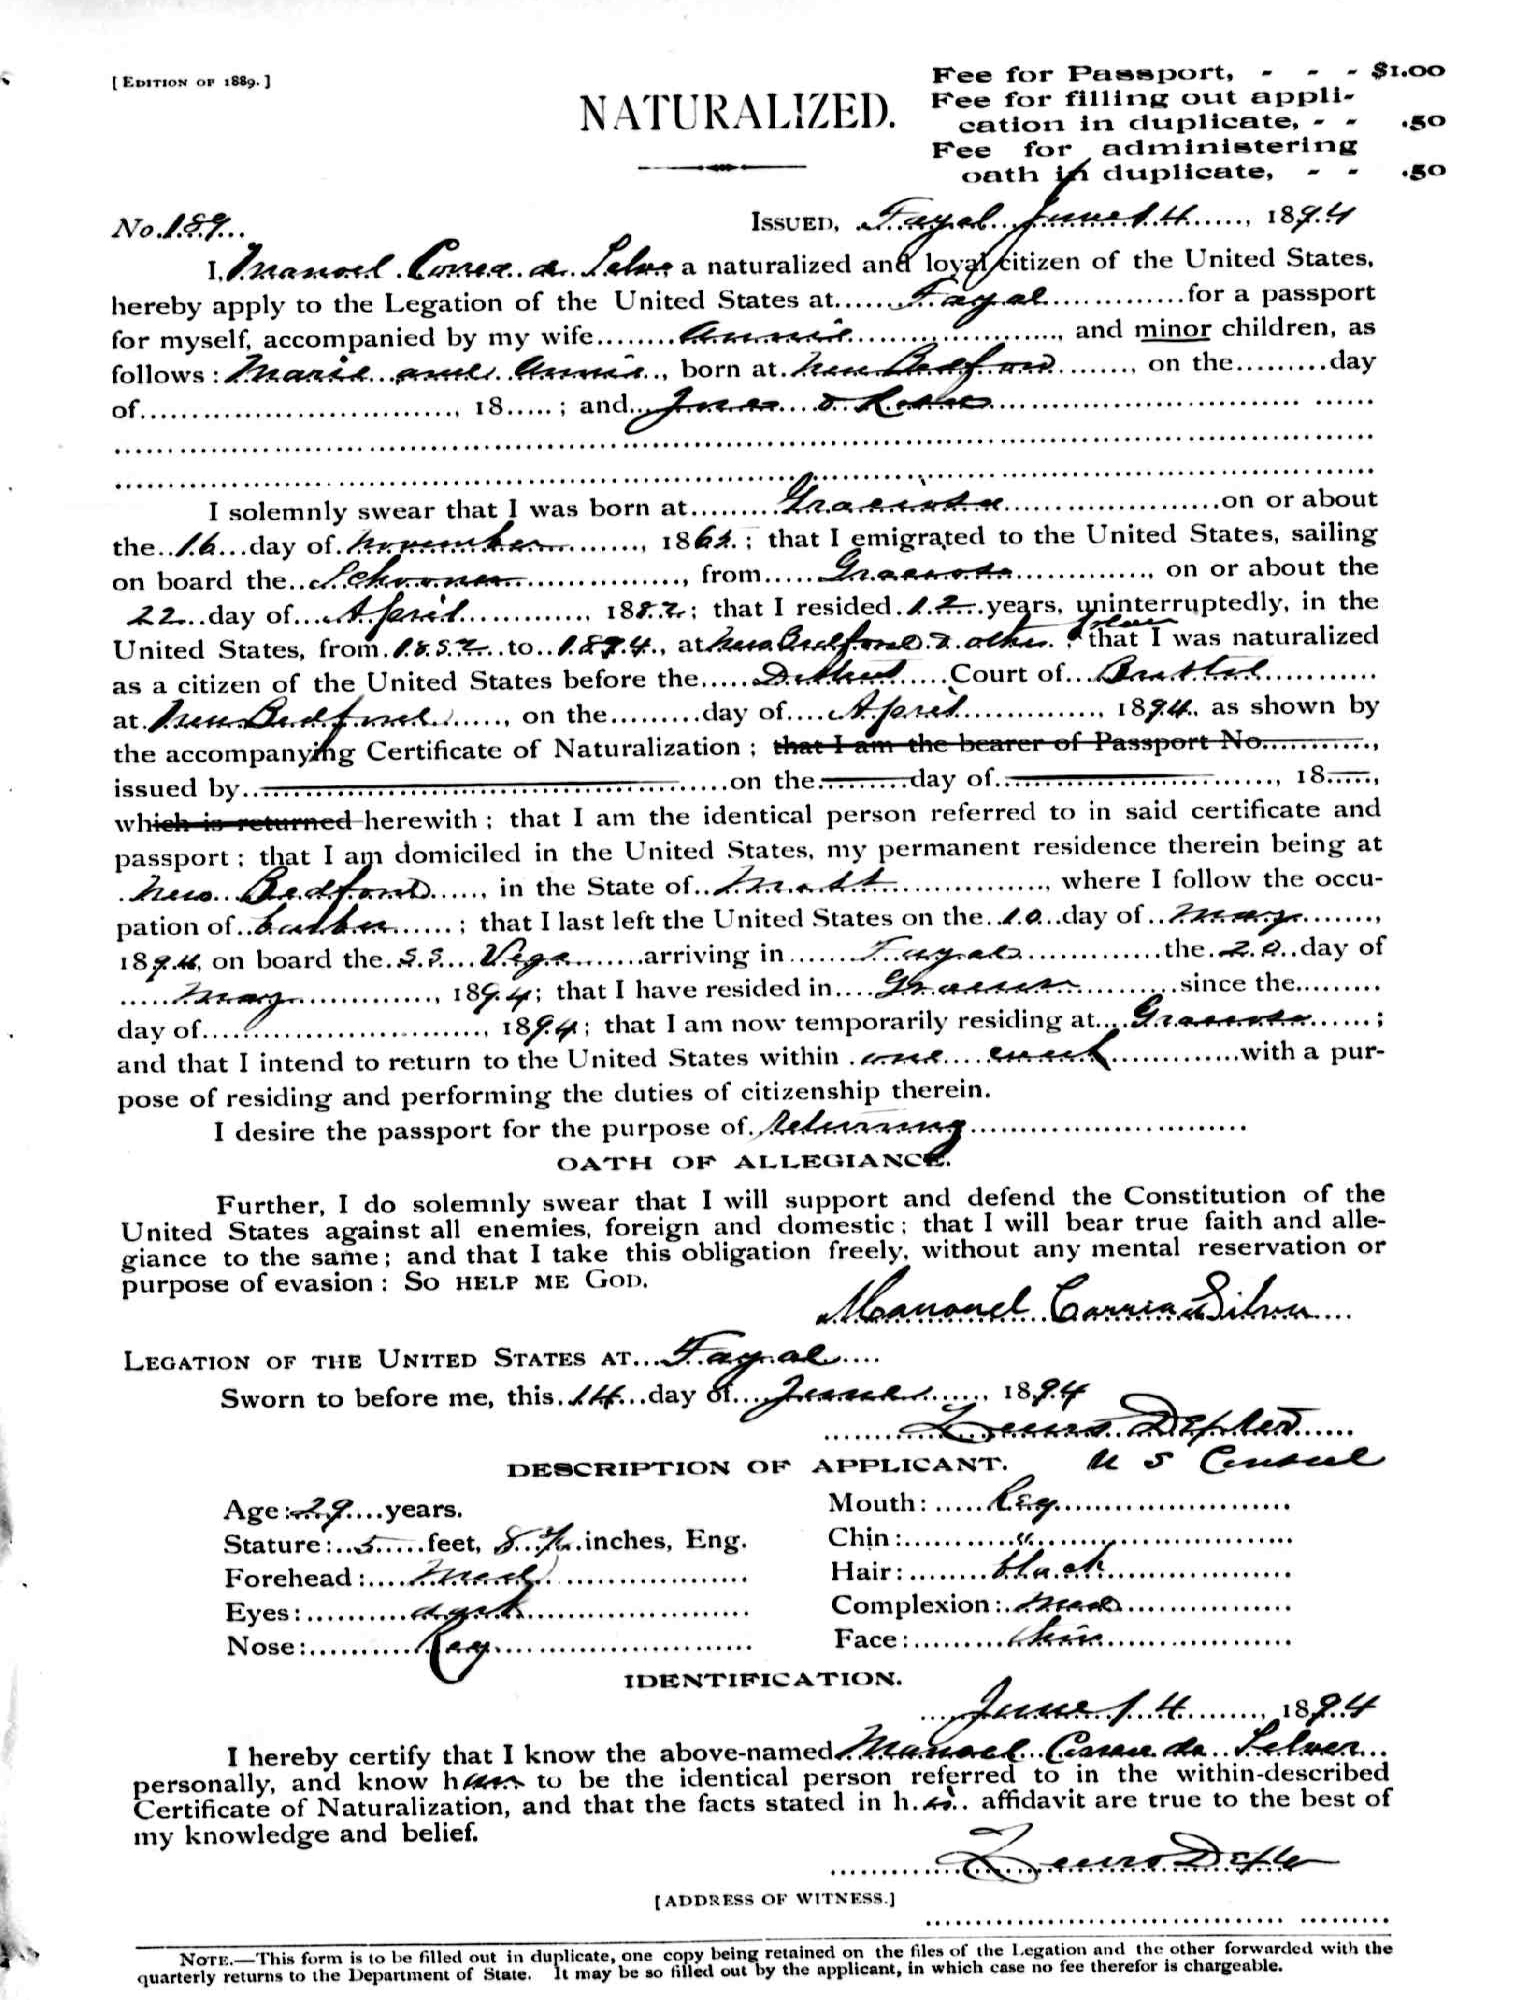 [EDITION OF 1889.]
NATURALIZED.
Fee for Passport, - - - $1.00
Fee for filling out appli-
cation in duplicate, - - .50
Fee for administering
oath in duplicate, - - .50
No. 189
ISSUED, Fayal June 14, 1894
I, Manoel Correa da Silva a naturalized and loyal citizen of the United States,
hereby apply to the Legation of the United States at Fayal for a passport
for myself, accompanied by my wife Annie, and minor children, as
follows: Marie and Annie, born at New Bedford, on the day
of , 18 ; and & Rosa
I solemnly swear that I was born at Graciosa on or about
the 16 day of November, 1862; that I emigrated to the United States, sailing
on board the Schooner, from Graciosa, on or about the
22 day of April, 1882; that I resided 12 years, uninterruptedly, in the
United States, from 1882 to 1894, at New Bedford & other places; that I was naturalized
as a citizen of the United States before the District Court of Bristol
at New Bedford, on the day of April, 1894, as shown by
the accompanying Certificate of Naturalization; that I am the bearer of Passport No. ,
issued by on the day of , 18 ,
which is returned herewith; that I am the identical person referred to in said certificate and
passport; that I am domiciled in the United States, my permanent residence therein being at
New Bedford, in the State of Mass, where I follow the occu-
pation of barber; that I last left the United States on the 10 day of May,
1894, on board the S.S. Vega arriving in Fayal the 20 day of
May, 1894; that I have resided in since the
day of , 1894; that I am now temporarily residing at Graciosa;
and that I intend to return to the United States within one week with a pur-
pose of residing and performing the duties of citizenship therein.
I desire the passport for the purpose of returning
OATH OF ALLEGIANCE.
Further, I do solemnly swear that I will support and defend the Constitution of the
United States against all enemies, foreign and domestic; that I will bear true faith and alle-
giance to the same; and that I take this obligation freely, without any mental reservation or
purpose of evasion: SO HELP ME GOD.
Manouel Correia Silva
LEGATION OF THE UNITED STATES AT Fayal
Sworn to before me, this 14 day of June, 1894
U S Consul
DESCRIPTION OF APPLICANT.
Age: 29 years.
Mouth: Reg
Stature: 5 feet, 8 ½ inches, Eng.
Chin: "
Forehead: Med
Hair: black
Eyes: dark
Complexion: med
Nose: Reg
Face: thin
IDENTIFICATION.
June 14, 1894
I hereby certify that I know the above-named Manoel Correa da Silva
personally, and know him to be the identical person referred to in the within-described
Certificate of Naturalization, and that the facts stated in his affidavit are true to the best of
my knowledge and belief.
[ADDRESS OF WITNESS.]
NOTE.—This form is to be filled out in duplicate, one copy being retained on the files of the Legation and the other forwarded with the
quarterly returns to the Department of State. It may be so filled out by the applicant, in which case no fee therefor is chargeable.